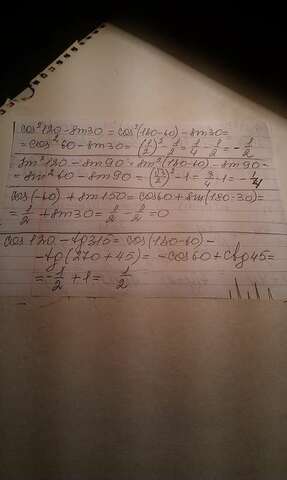 cos²120 - sin30 = cos²(180-60) - sin30 =
= cos²60 - sin30 = (1/2)² - 1/2 = 1/4 - 1/2 = - 1/2
sin²120 - sin90 = sin²(180-60) - sin90 =
= sin²60 - sin90 = (√3/2)² - 1 = 3/4 - 1 = - 1/4
cos(-60) + sin150 = cos60 + sin(180-30) =
= 1/2 + sin30 = 1/2 - 1/2 = 0
cos120 - tg315 = cos(180-60) -
- tg(270+45) = - cos60 + ctg45 =
= - 1/2 + 1 = 1/2